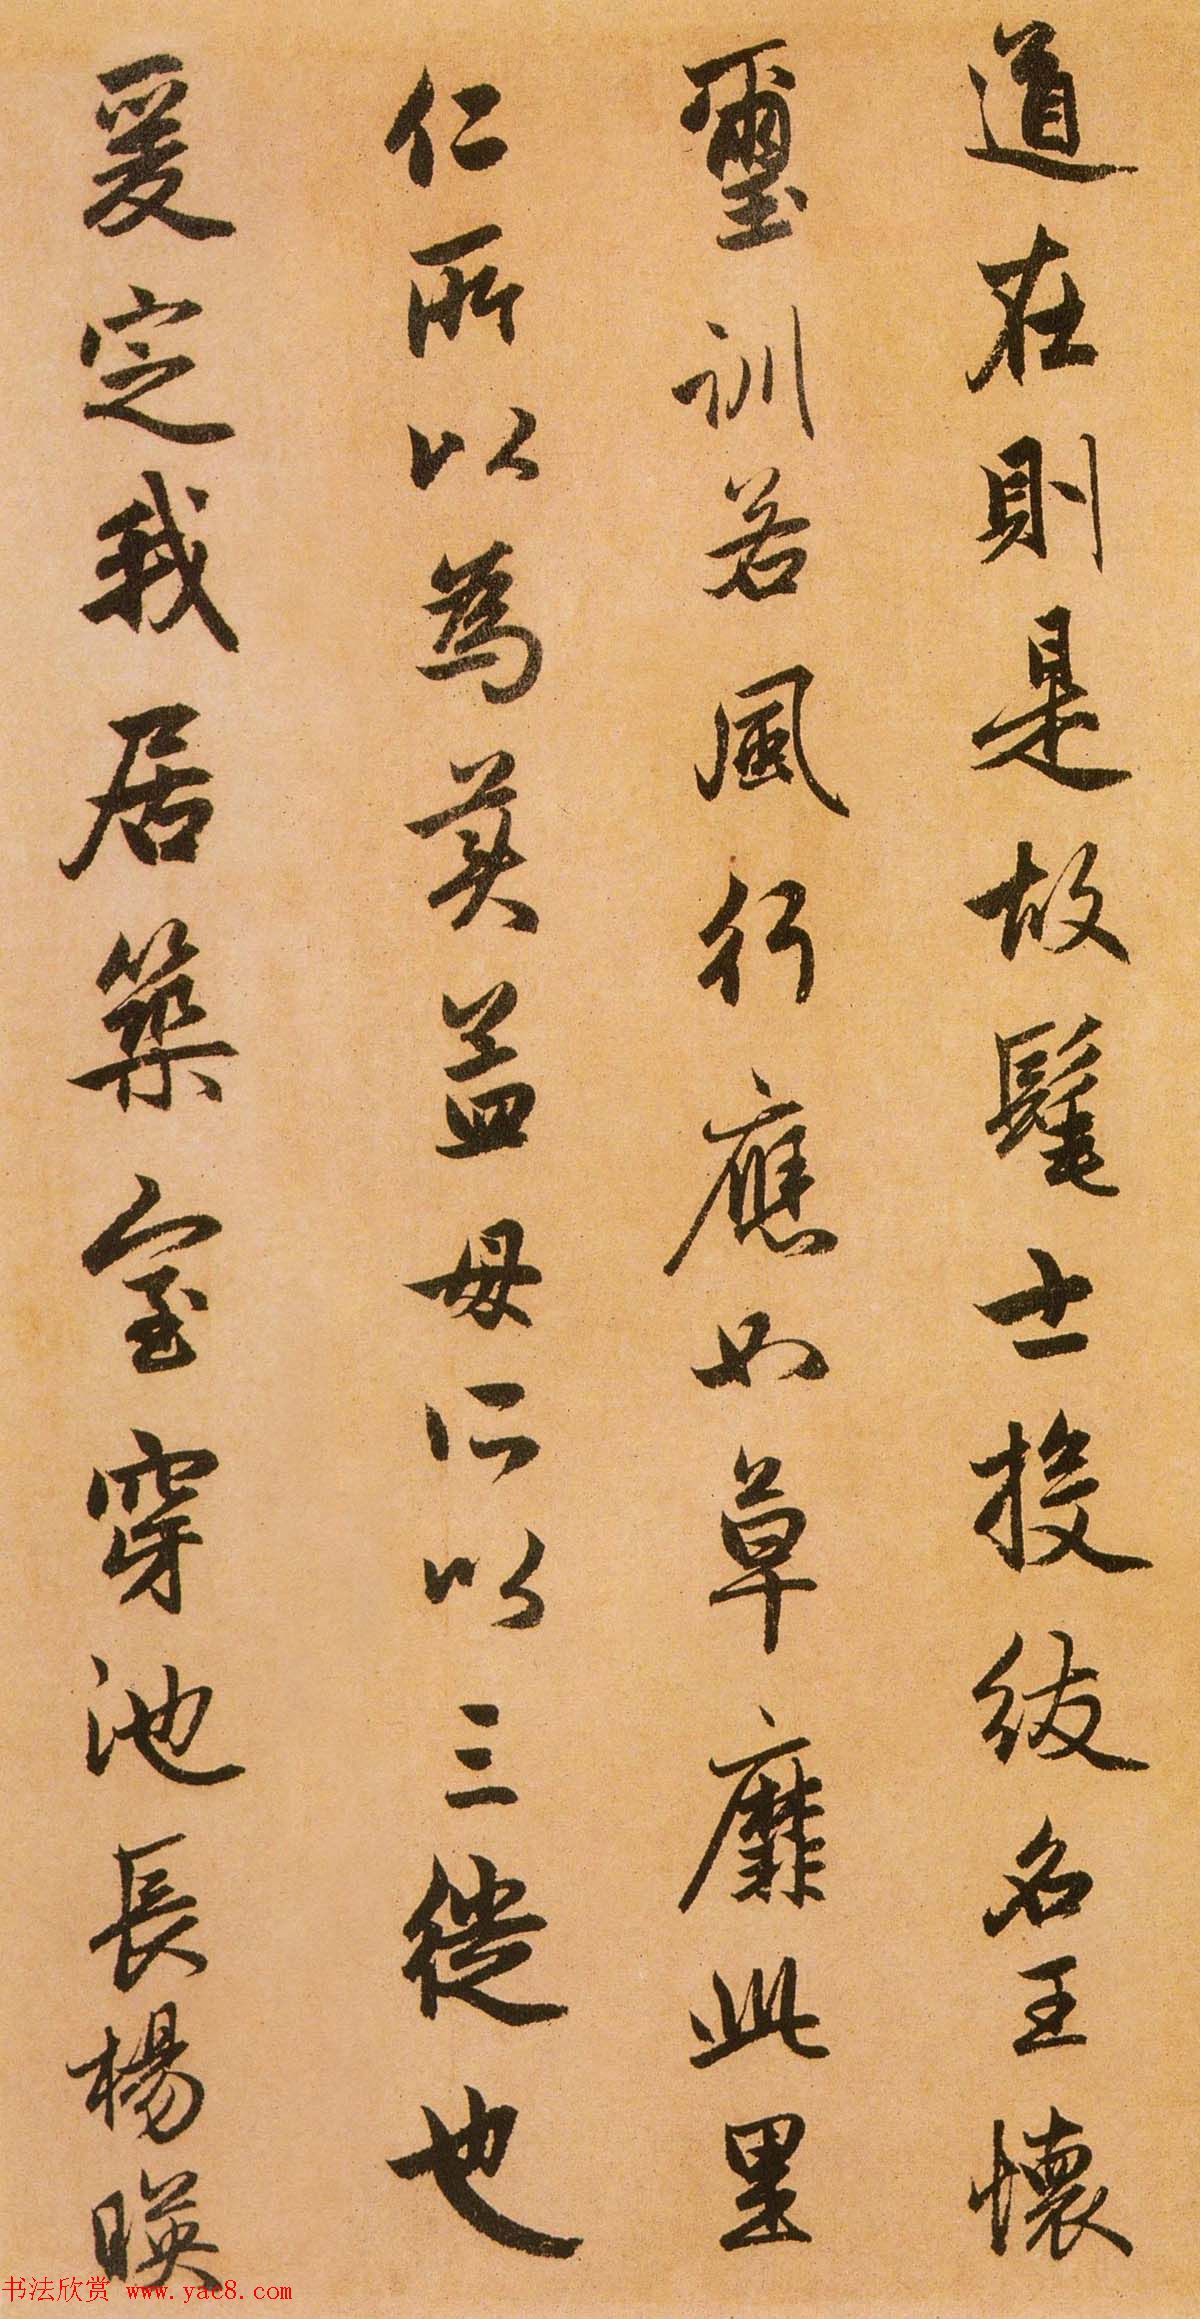 道在則是故髦士投紱名王懷
璽訓若風行應如草靡此里
仁所以為美孟母所以三徙也
爰定我居築室穿池長楊暎
书法欣赏 www.yac8.com